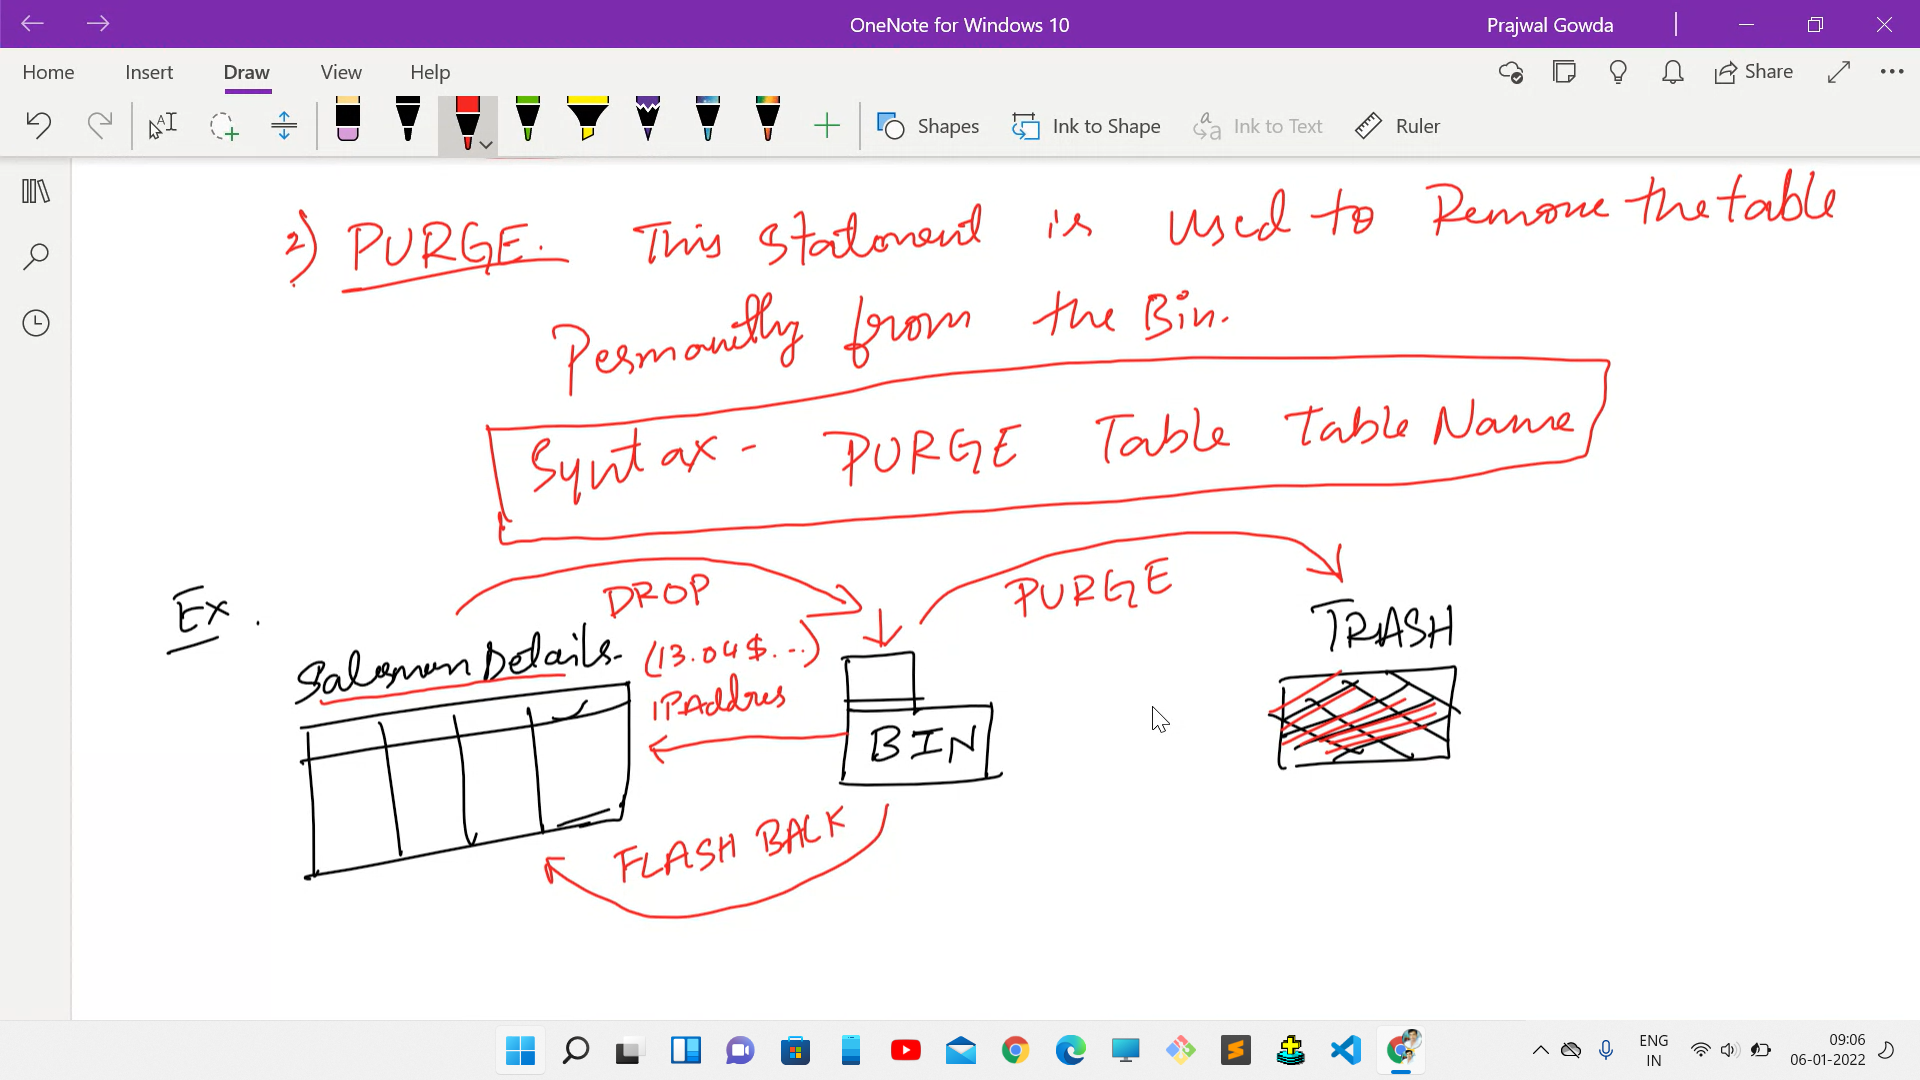 OneNote for Windows 10
Prajwal Gowda
Home Insert Draw View Help
Share
Shapes Ink to Shape Ink to Text Ruler
2) PURGE. This Statement is Used to Remove the table
Permanetly from the Bin.
Syntax - PURGE Table Table Name
Ex.
DROP
PURGE
TRASH
Salesman Details.
(13.04$...)
IPAddres
BIN
FLASH BACK
ENG
IN
09:06
06-01-2022